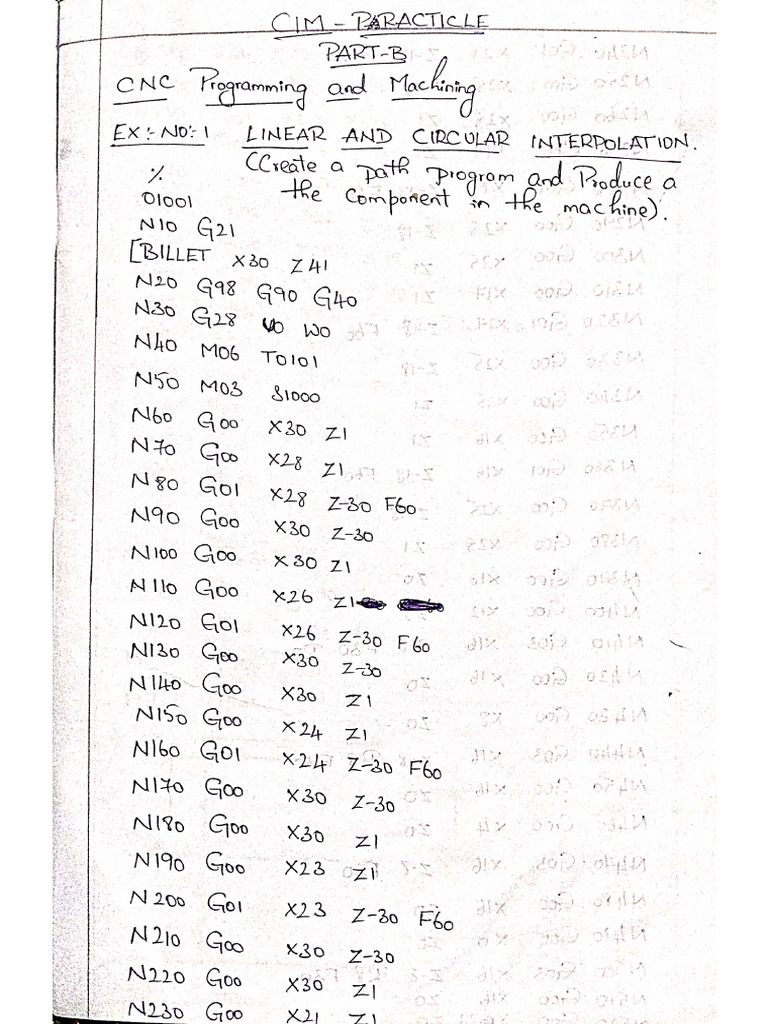 CIM - PARACTICLE
PART-B
CNC Programming and Machining
EX:-NO:-1 LINEAR AND CIRCULAR INTERPOLATION.
(Create a path program and Produce a
the Component in the machine).
%
O1001
N10 G21
[BILLET X30 Z41
N20 G98 G90 G40
N30 G28 U0 W0
N40 M06 T0101
N50 M03 S1000
N60 G00 X30 Z1
N70 G00 X28 Z1
N80 G01 X28 Z-30 F60
N90 G00 X30 Z-30
N100 G00 X30 Z1
N110 G00 X26 Z1
N120 G01 X26 Z-30 F60
N130 G00 X30 Z-30
N140 G00 X30 Z1
N150 G00 X24 Z1
N160 G01 X24 Z-30 F60
N170 G00 X30 Z-30
N180 G00 X30 Z1
N190 G00 X23 Z1
N200 G01 X23 Z-30 F60
N210 G00 X30 Z-30
N220 G00 X30 Z1
N230 G00 X21 Z1